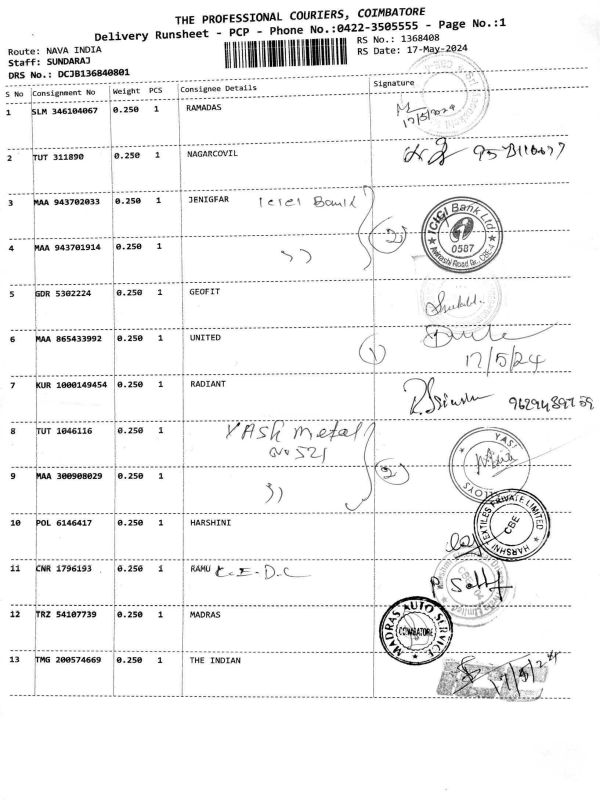 THE PROFESSIONAL COURIERS, COIMBATORE
Delivery Runsheet - PCP - Phone No.:0422-3505555 - Page No.:1
Route: NAVA INDIA
RS No.: 1368408
Staff: SUNDARAJ
RS Date: 17-May-2024
DRS No.: DCJB136840801
S No Consignment No Weight PCS Consignee Details Signature
1 SLM 346104067 0.250 1 RAMADAS
17/5/2024
2 TUT 311890 0.250 1 NAGARCOVIL
3 MAA 943702033 0.250 1 JENIGFAR ICICI Bank
ICICI Bank Ltd
0587
4 MAA 943701914 0.250 1 )) 2
5 GDR 5302224 0.250 1 GEOFIT
6 MAA 865433992 0.250 1 UNITED 1
17/5/24
7 KUR 1000149454 0.250 1 RADIANT
8 TUT 1046116 0.250 1 YASH metal
No 521
9 MAA 300908029 0.250 1 )) 2
10 POL 6146417 0.250 1 HARSHINI
HARSHNI TEXTILES PRIVATE LIMITED
CBE
11 CNR 1796193 0.250 1 RAMU K.E.D.C
12 TRZ 54107739 0.250 1 MADRAS
MADRAS AUTO SERVICE
COIMBATORE
13 TMG 200574669 0.250 1 THE INDIAN
17/5/24